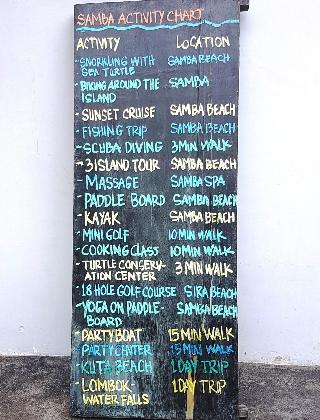 SAMBA ACTIVITY CHART
ACTIVITY LOCATION
- SNORKLING WITH SEA TURTLE SAMBA BEACH
- BIKING AROUND THE ISLAND SAMBA
- SUNSET CRUISE SAMBA BEACH
- FISHING TRIP SAMBA BEACH
- SCUBA DIVING 3 MIN WALK
- 3 ISLAND TOUR SAMBA BEACH
- MASSAGE SAMBA SPA
- PADDLE BOARD SAMBA BEACH
- KAYAK SAMBA BEACH
- MINI GOLF 10 MIN WALK
- COOKING CLASS 10 MIN WALK
- TURTLE CONSERV-
ATION CENTER 3 MIN WALK
- 18 HOLE GOLF COURSE SIRA BEACH
- YOGA ON PADDLE-
BOARD SAMBA BEACH
- PARTY BOAT 15 MIN WALK
- PARTY CENTER 15 MIN WALK
- KUTA BEACH 1 DAY TRIP
- LOMBOK-
WATER FALLS 1 DAY TRIP